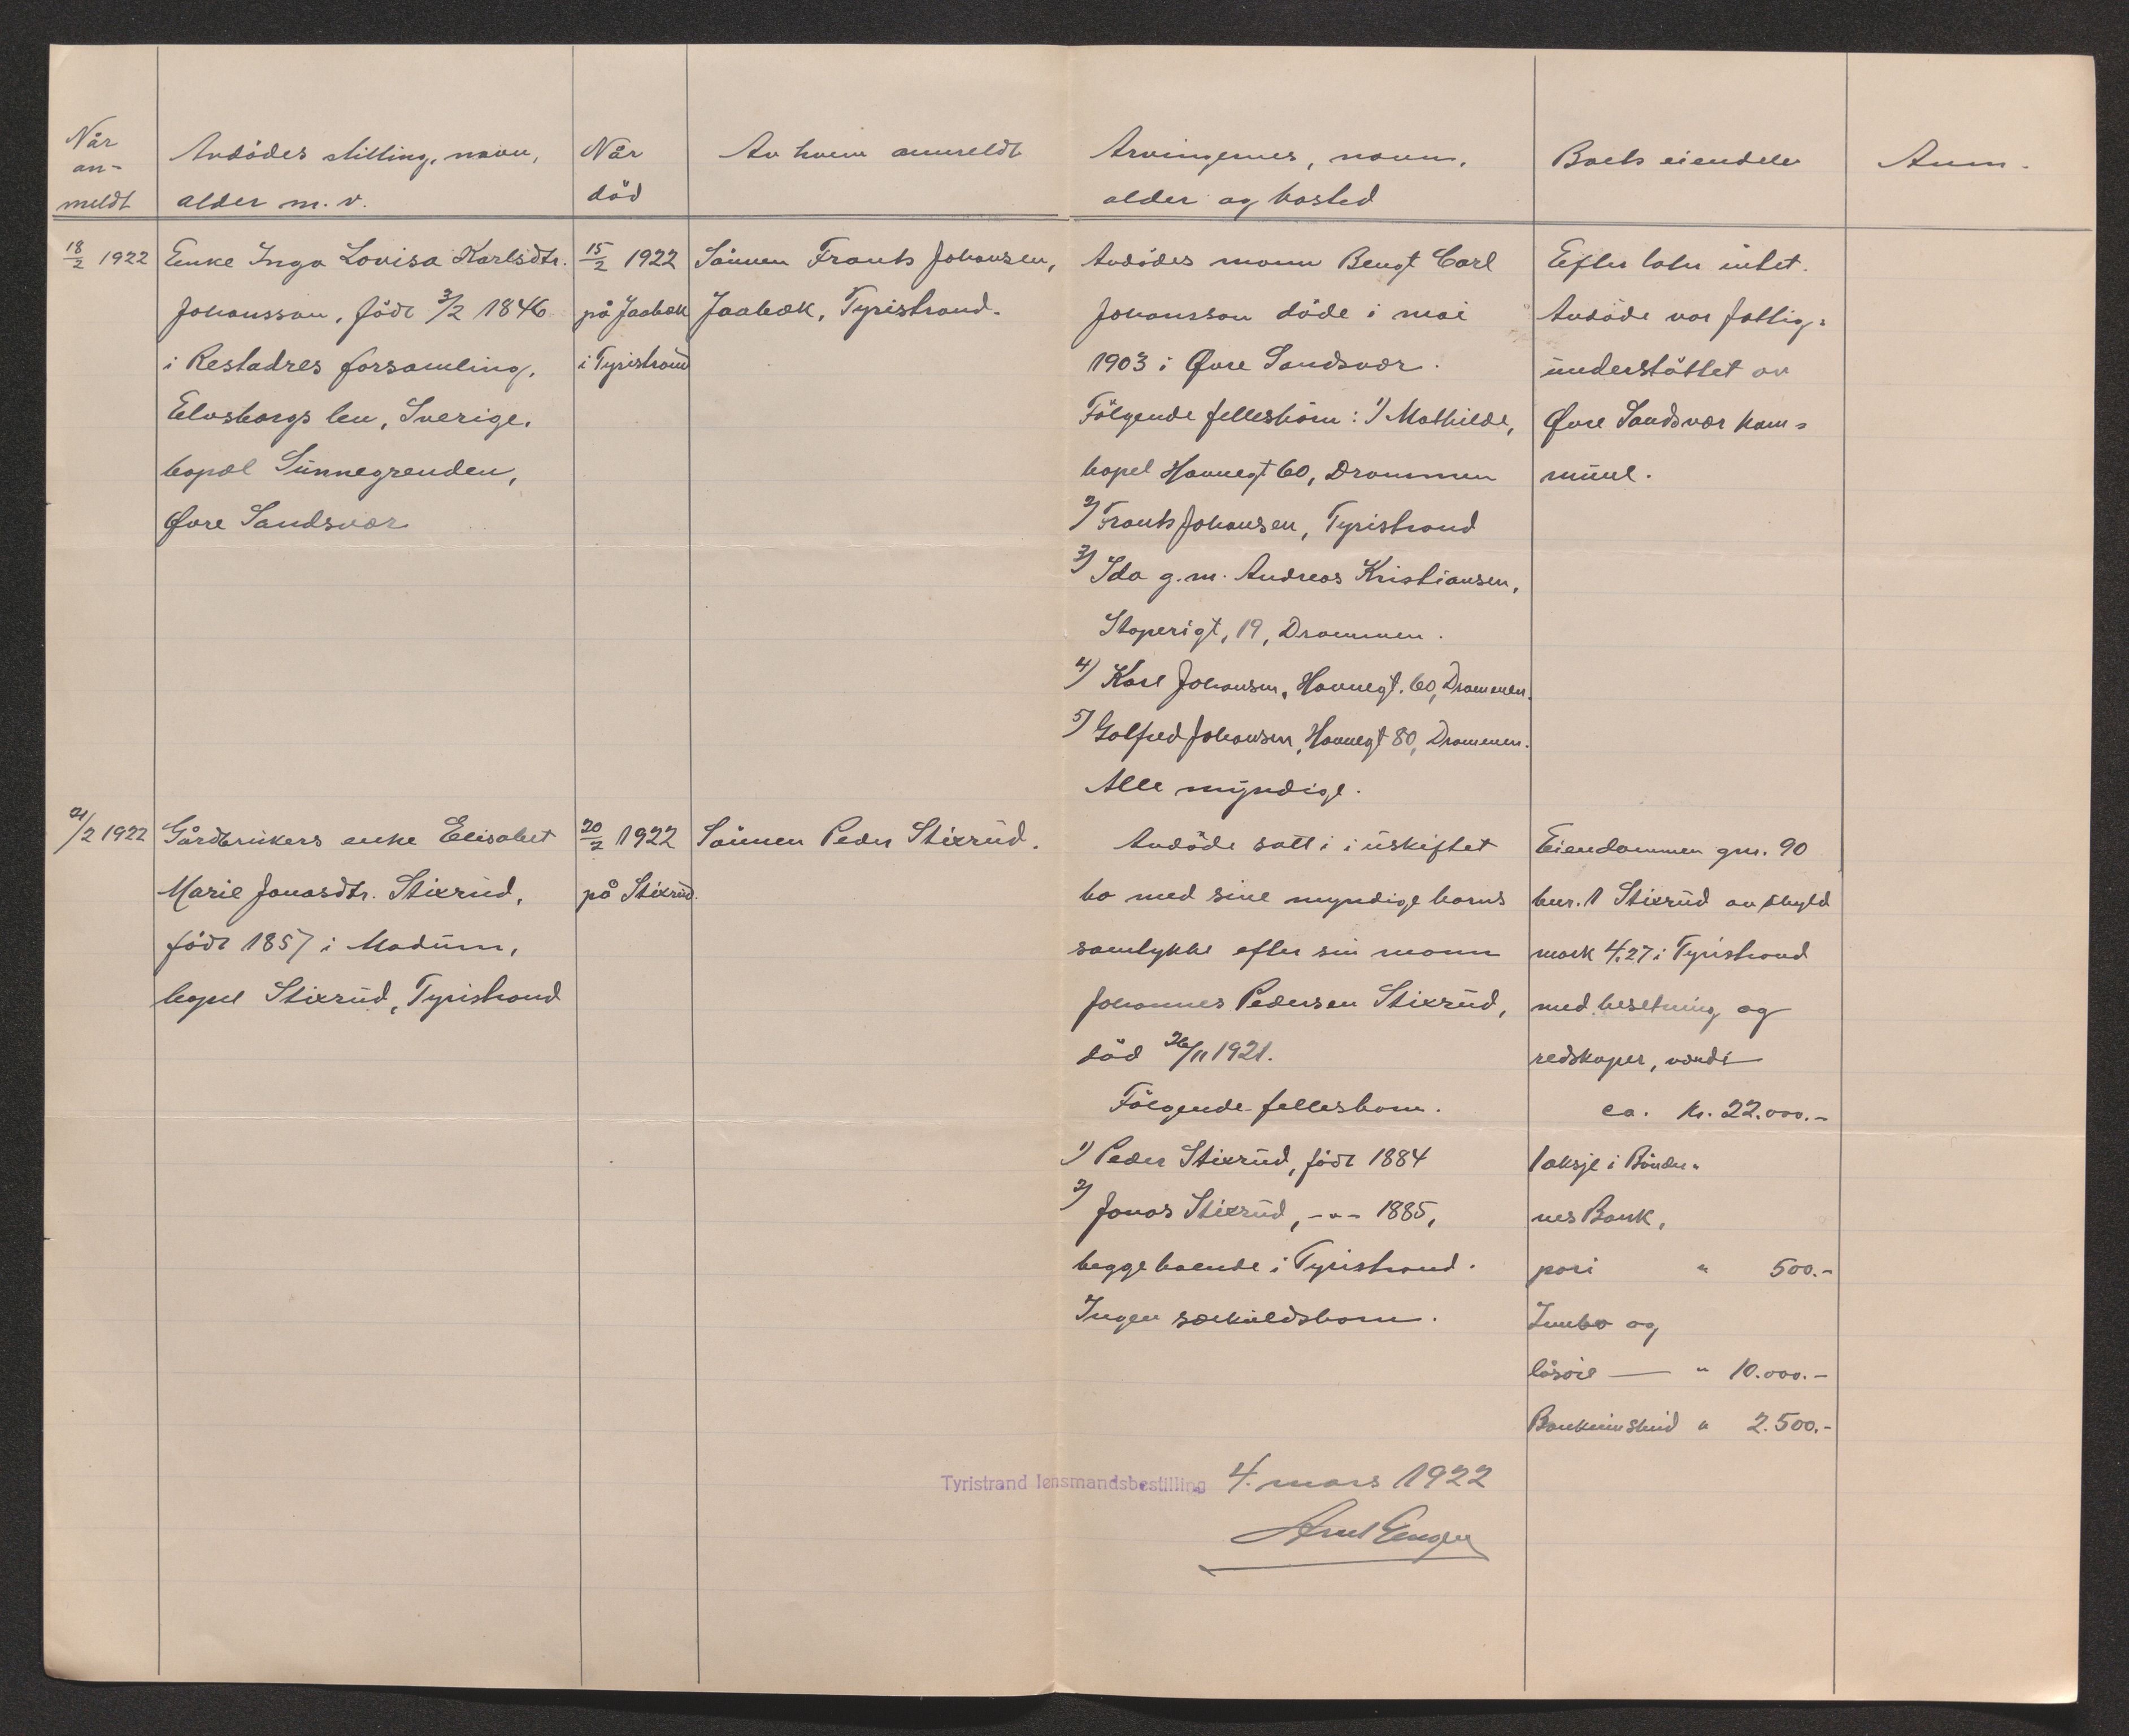 Når
an-
meldt
Avdödes stilling, navn,
alder m. v.
Når
död
Av hvem anmeldt
Arvingernes, navn,
alder og bosted
Boets eiendele
Anm.
18/2 1922
Enke Inga Lovisa Karlsdtr.
Johansson, födt 3/2 1846
i Restadres forsamling,
Elvsborgs len, Sverige,
bopæl Sünnegrenden,
Øvre Sandsvær
15/2 1922
på Jaabæk
i Tyristrand
Sönnen Frants Johansen,
Jaabæk, Tyristrand.
Avdödes mann Bengt Carl
Johansson döde i mai
1903 i Øvre Sandsvær.
Fölgende fellesbörn: 1) Mathilde,
bopel Havnegt 60, Drammen
2) Frants Johansen, Tyristrand
3) Ida g.m. Andreas Kristiansen,
19, Drammen.
4) Karl Johansen, Havnegt. 60, Drammen.
5) Golfred Johansen, Havnegt 80, Drammen.
Alle mÿndige.
Efter later intet.
Avdöde var fattig=
ünderstöttet av
Øvre Sandsvær kom=
müne.
21/2 1922
Gårdbrükers enke Elisabet
Marie Jonasdtr. Stixrüd,
födt 1857 i Modüm,
bopel Stixrüd, Tyristrand
20/2 1922
på Stixrüd.
Sönnen Peder Stixrüd.
Avdöde satt i üskiftet
bo med sine myndige barns
samtykke efter sin mann
Johannes Pedersen Stixrüd,
död 26/11 1921.
Fölgende fellesbarn.
1) Peder Stixrüd, födt 1884
2) Jonas Stixrüd, -"- 1885,
begge boende i Tyristrand.
Ingen særkuldsbarn.
Eiendommen gnr. 90
bnr. 1 Stixrüd av skyld
mark 4,27 i Tyristrand
med besetning og
redskaper, verdi
ca. kr. 22.000.-
1 aksje i Bönder=
nes Bank,
pari " 500.-
Innbo og
lösöre — " 10.000.-
Bankinnskud " 2.500.-
Tyristrand lensmandsbestilling 4. mars 1922